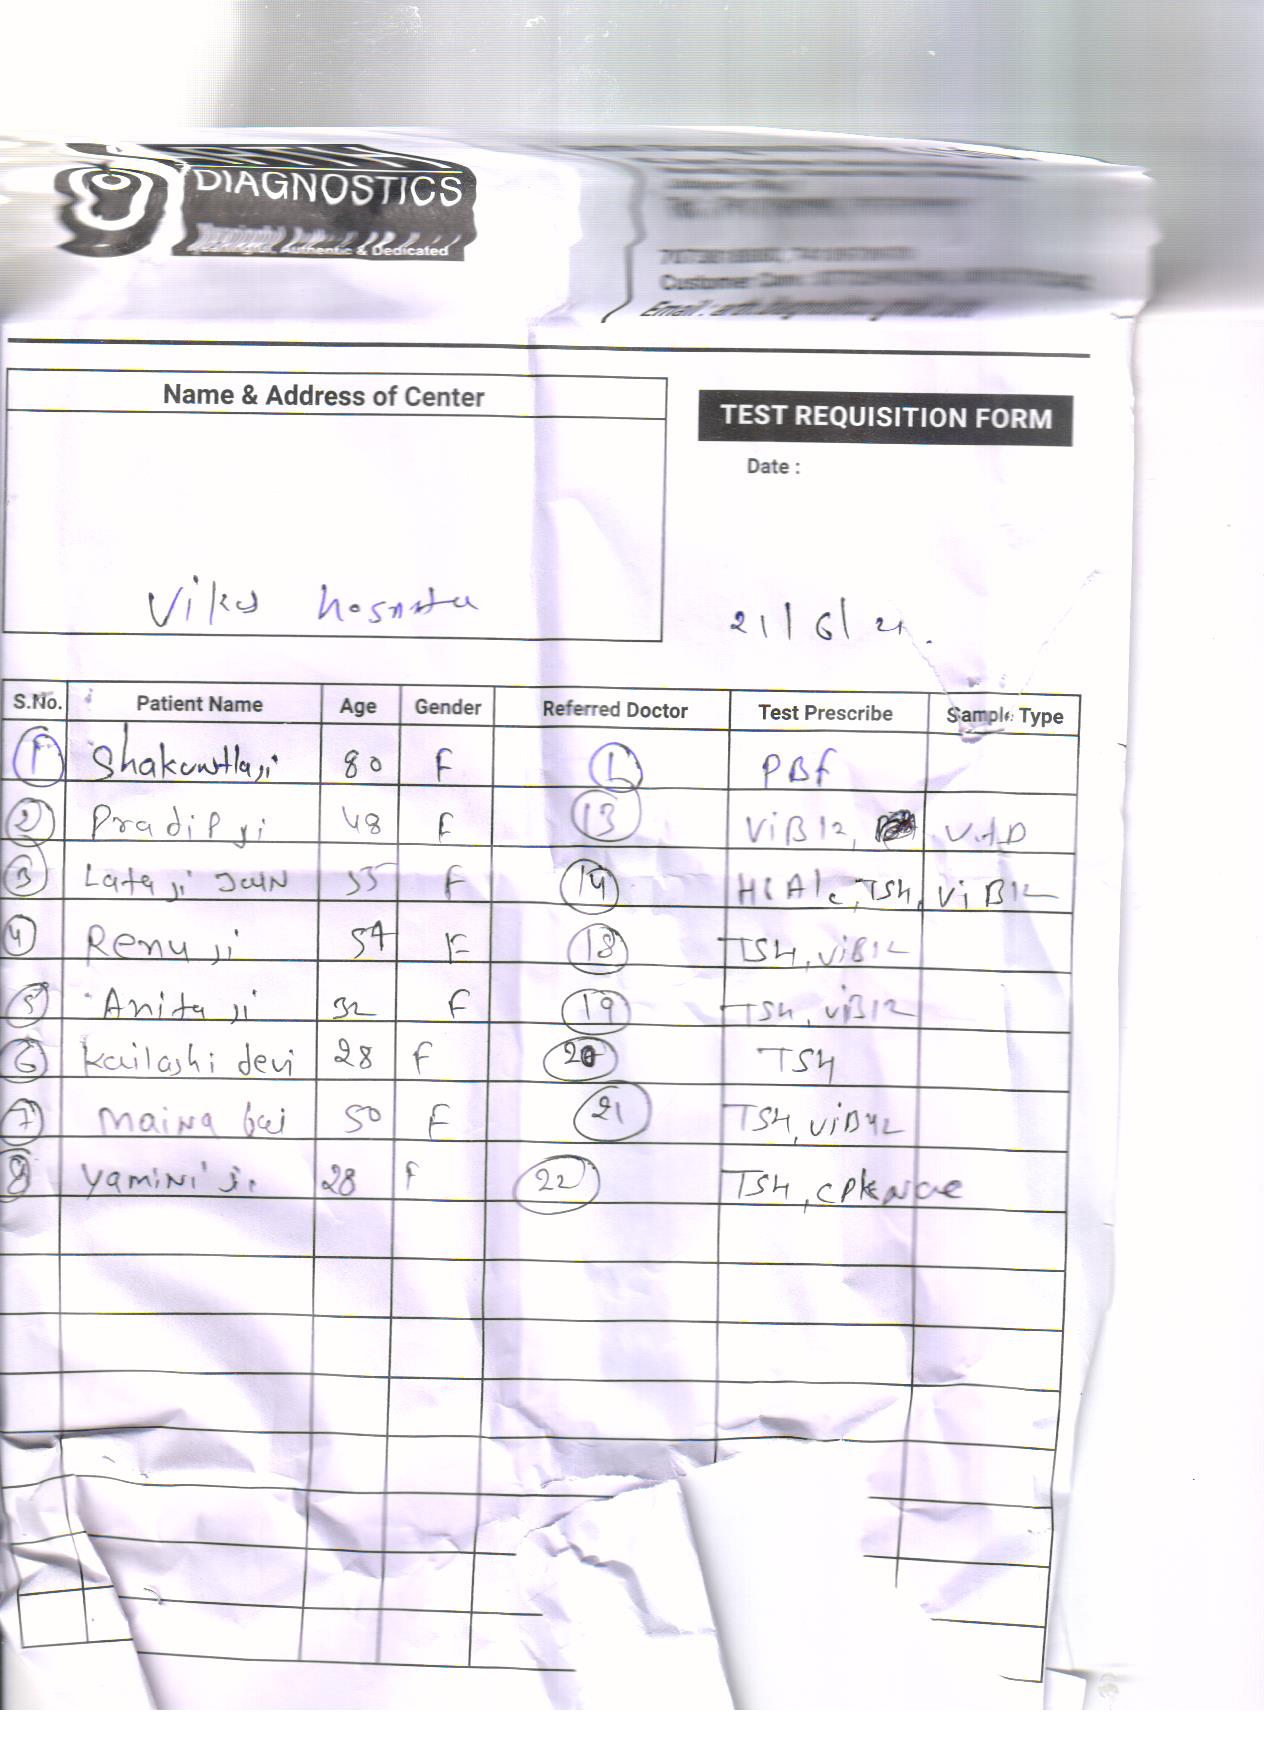 DIAGNOSTICS
Authentic & Dedicated
Customer Care
Email :
Name & Address of Center
TEST REQUISITION FORM
Date :
21/6/21.
S.No. Patient Name Age Gender Referred Doctor Test Prescribe Sample Type
1 Shakuntla ji 80 F 1 PBF
2 Pradip ji 48 F 13 ViB12,
3 Lata ji Jain 55 F 14 HbA1c, TSH, ViB12
4 Renu ji 54 F 18 TSH, ViB12
5 Anita ji 32 F 19 TSH, ViB12
6 Kailashi devi 28 F 20 TSH
7 Maina bai 50 F 21 TSH, ViB12
8 Yamini ji 28 F 22 TSH,